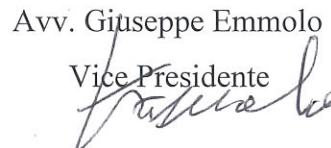 Avv. Giuseppe Emmolo
Vice Presidente